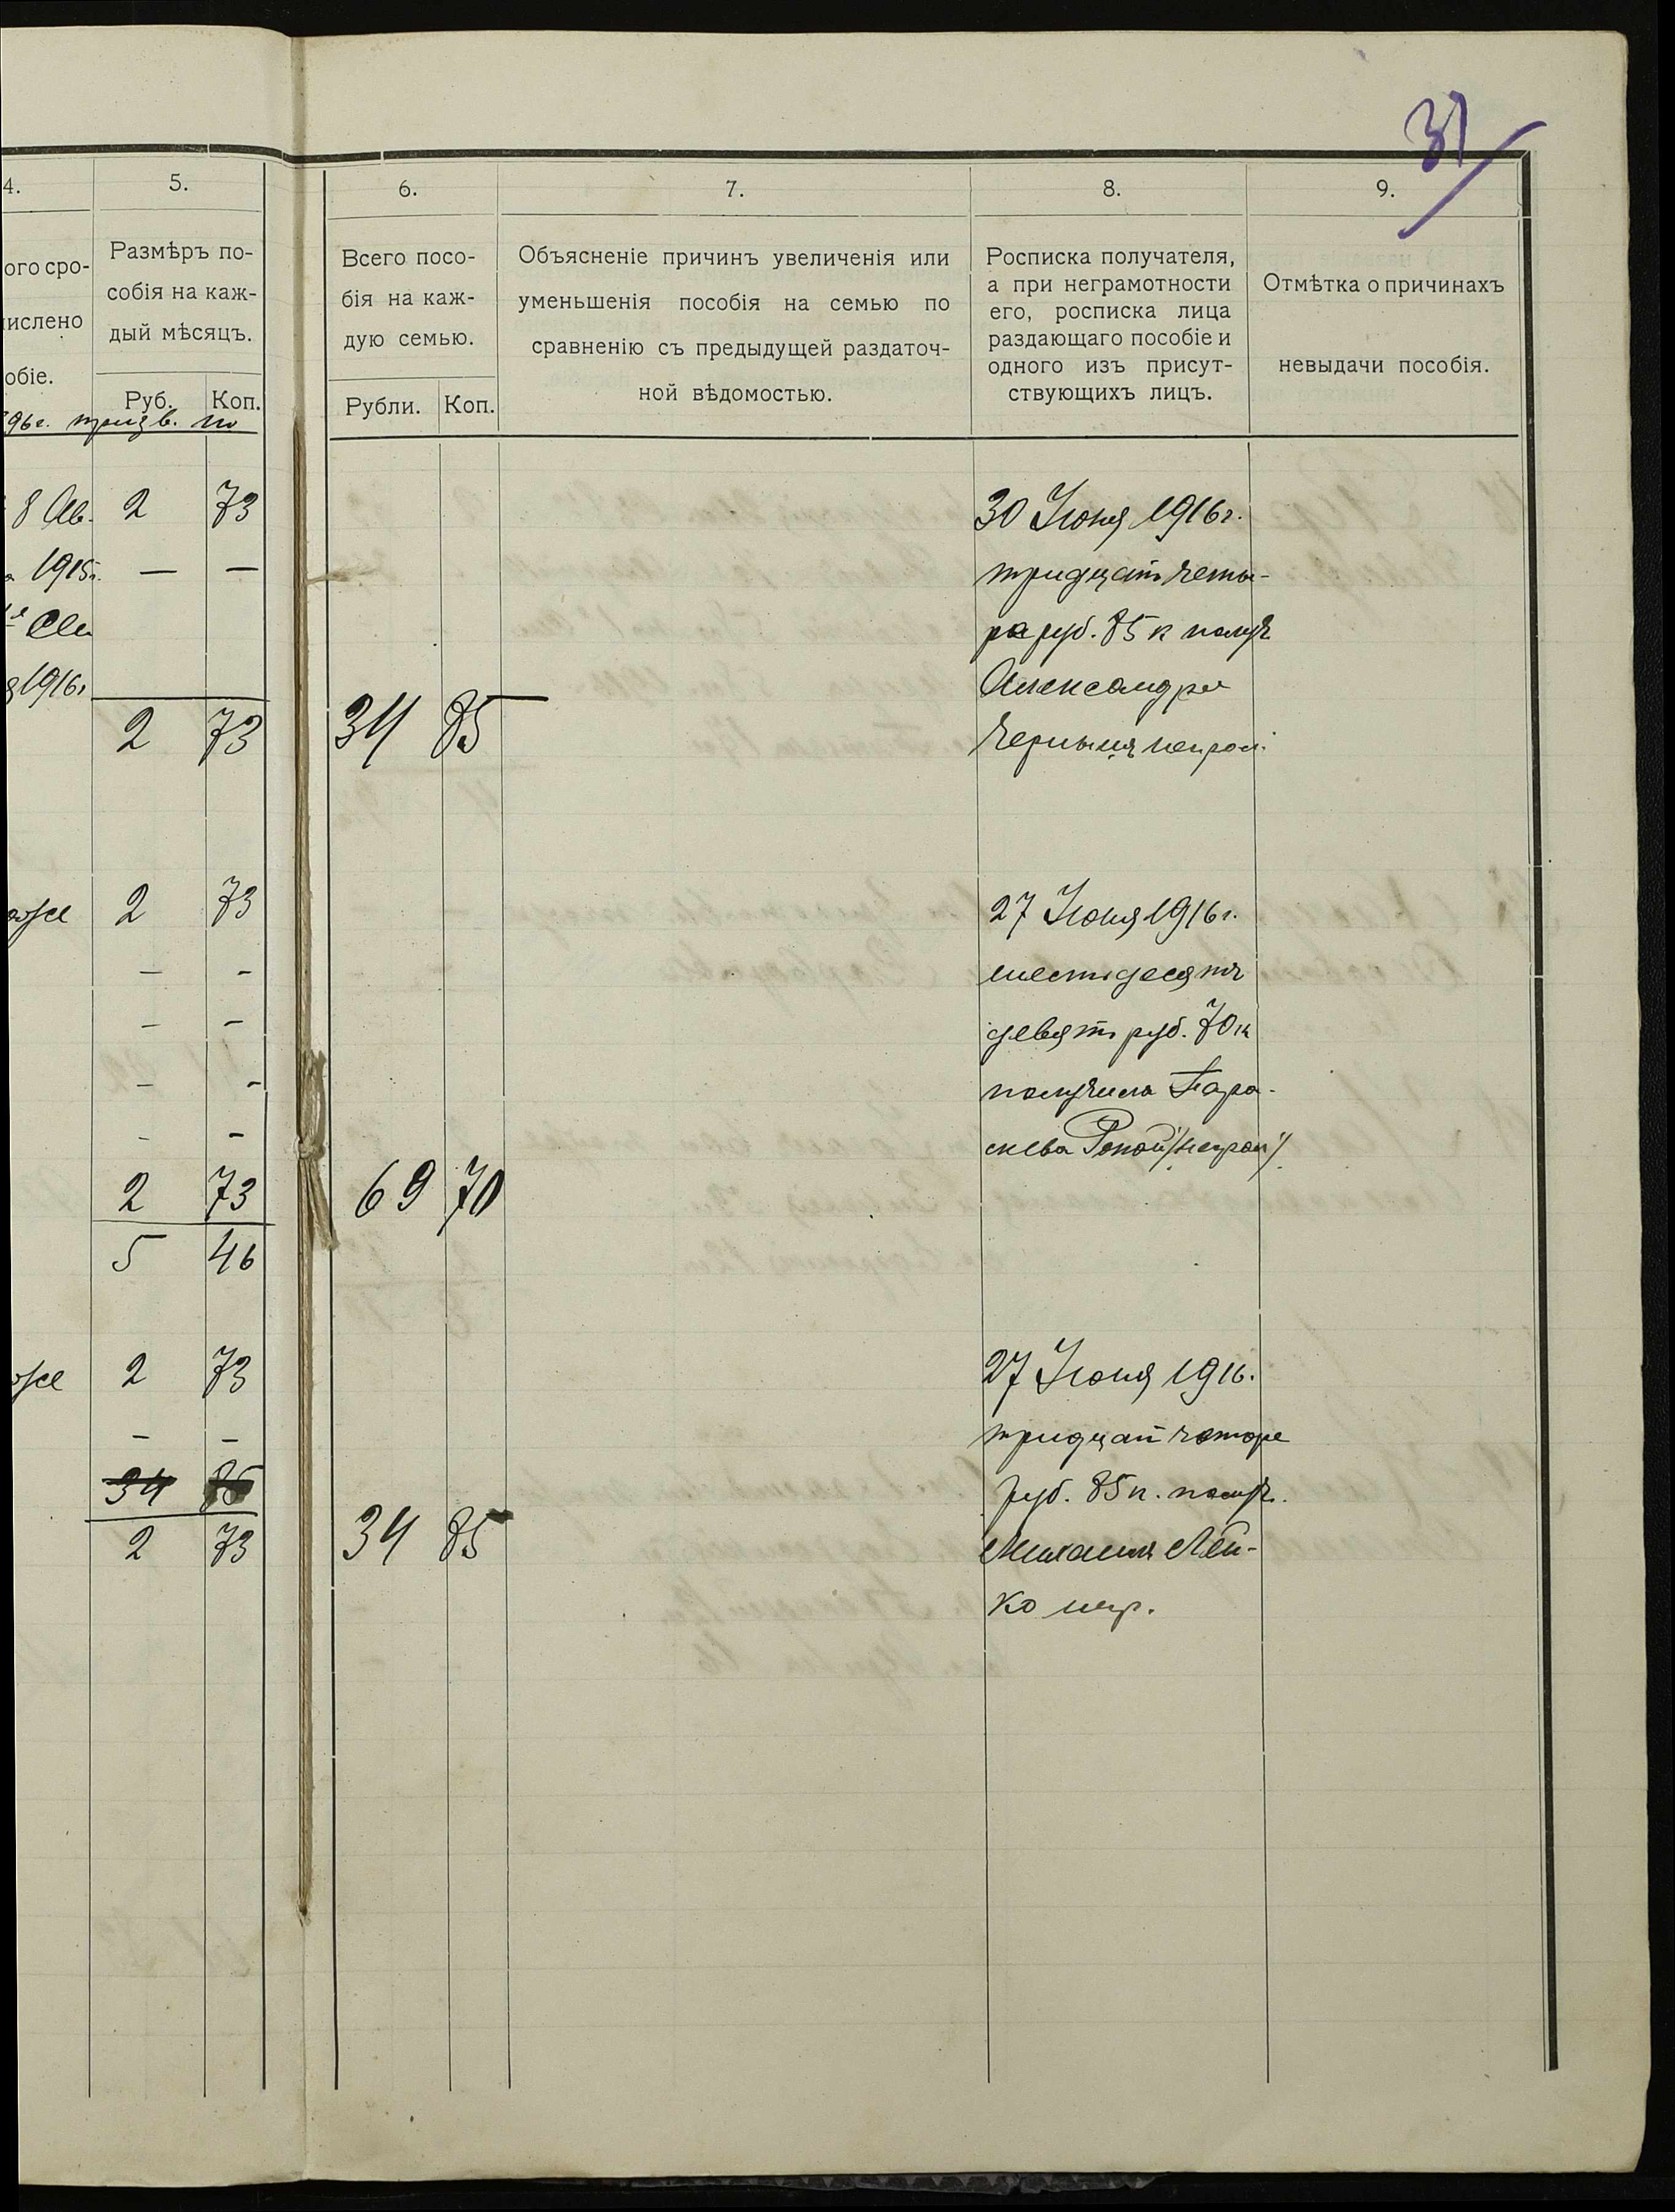 31
4.
5.
6.
7.
8.
9.
ого сро-
числено
обіе.
Размѣръ по-
собія на каж-
дый мѣсяцъ.
Руб. Коп.
96г. призв. по
Всего посо-
бія на каж-
дую семью.
Рубли. Коп.
Объясненіе причинъ увеличенія или
уменьшенія пособія на семью по
сравненію съ предыдущей раздаточ-
ной вѣдомостью.
Росписка получателя,
а при неграмотности
его, росписка лица
раздающаго пособіе и
одного изъ присут-
ствующихъ лицъ.
Отмѣтка о причинахъ
невыдачи пособія.
8 Ав. 2 73
1915г. — —
1916г
2 73
34 85
30 Июня 1916г.
тридцать четы-
ра руб. 85 к получ
Александра
неграм.
оже 2 73
— -
- -
- -
- -
2 73
5 46
69 70
27 Июня 1916г.
шестьдесятъ
девять руб. 70 к
получила Пара-
скева
оже 2 73
- -
34 85
2 73
34 85
27 Июня 1916.
тридцать четыре
руб. 85 к. получ.
Михаилъ
ко негр.